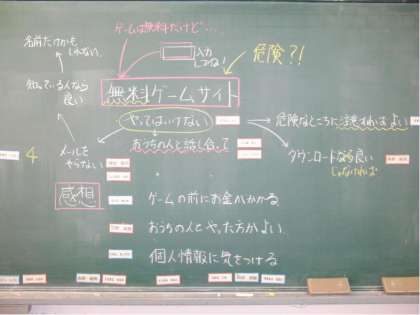 ゲームは無料だけど…
名前だけかも
しれない。
入力
しないで!
危険?!
知っている人なら
良い
無料ゲームサイト
やってはいけない
おうちの人と話し合って
危険なところに注意すればよい
メールを
やらない
4
ダウンロードなら良い
じゃなければ
感想
ゲームの前にお金がかかる
おうちの人とやった方がよい
個人情報に気をつける